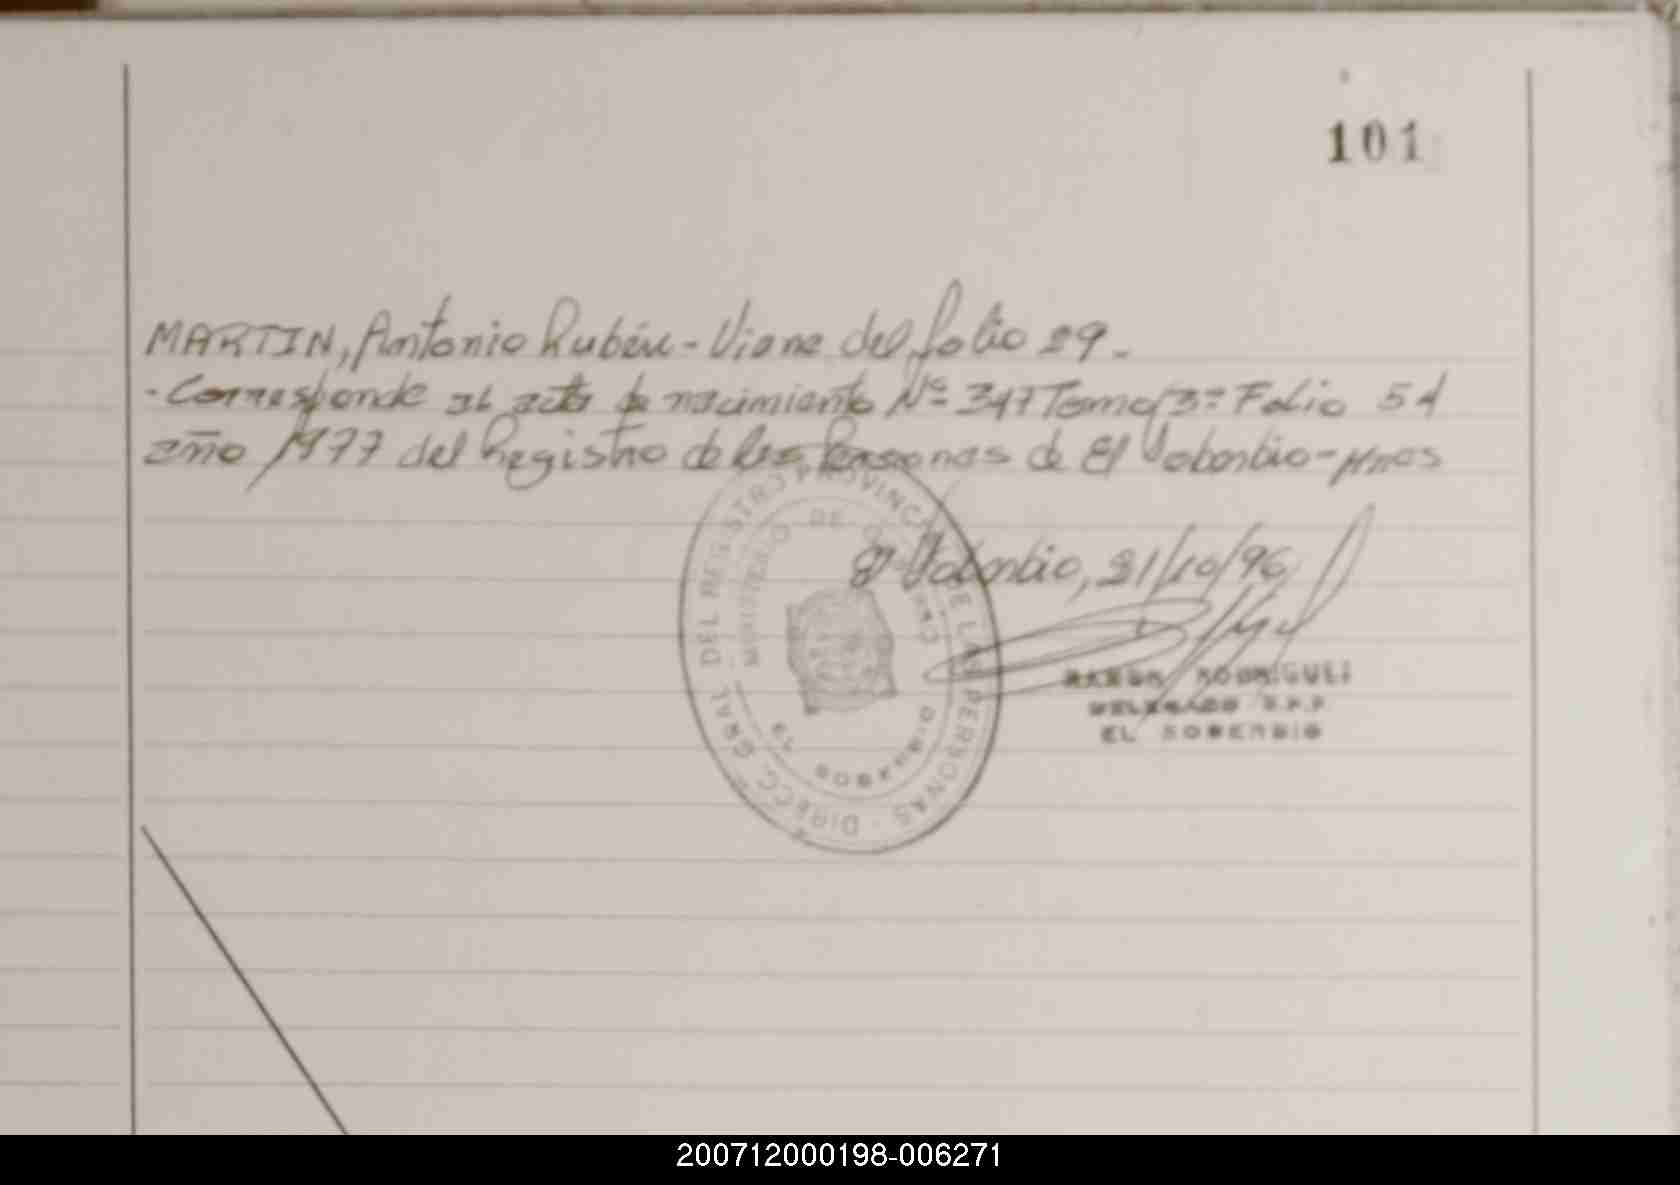 101
MARTIN, Antonio Rubén - Viene del folio 29 -
- Corresponde al acta de nacimiento Nº 347 Tomo 3º Folio 54
año 1977 del Registro de las Personas de El Soberbio - Mnes
El Soberbio, 21/10/96
RAMON RODRIGUEZ
DELEGADO R.P.P.
EL SOBERBIO
DIRECC. GRAL. DEL REGISTRO PROVINCIAL DE LAS PERSONAS
MINISTERIO DE GOBIERNO
EL SOBERBIO
200712000198-006271